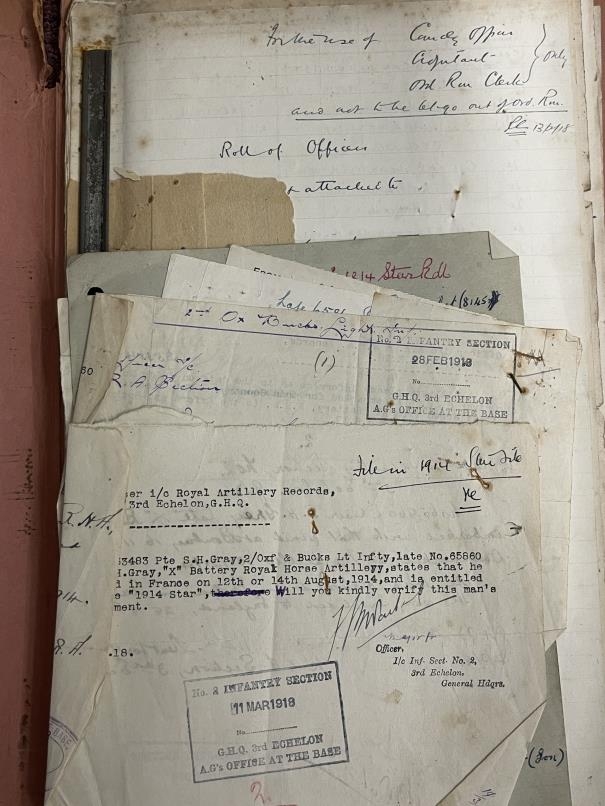 For the use of Comdg Officer
Adjutant
Ord Rm Clerk
only
and not to be let go out of Ord. Rm.
13/2/18
Roll of Officers
attached to
1914 Star Rdl
late 6501
2nd Ox Bucks Light Inf.
(1)
R.A. Section
No. 2 INFANTRY SECTION
28 FEB 1918
No.
G.H.Q. 3rd ECHELON
A.G's OFFICE AT THE BASE
File in 1914 Star File
er i/c Royal Artillery Records,
3rd Echelon, G.H.Q.
R.H.A.
3483 Pte S.H.Gray,2/Oxf & Bucks Lt Infty,late No.65860
H.Gray,"X" Battery Royal Horse Artillery, states that he
d in France on 12th or 14th August,1914,and is entitled
e "1914 Star", therefore Will you kindly verify this man's
ment.
914.
R.A.
.18.
Major
Officer,
I/c Inf. Sect. No. 2,
3rd Echelon,
General Hdqrs.
No. 2 INFANTRY SECTION
11 MAR 1918
No.
G.H.Q. 3rd ECHELON
A.G's OFFICE AT THE BASE
2